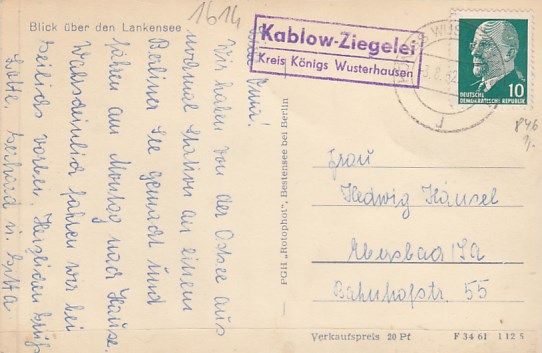 Blick über den Lankensee
1614
Kablow-Ziegelei
Kreis Königs Wusterhausen
WUS
10
DEUTSCHE
DEMOKRATISCHE REPUBLIK
846
Wir haben von der Ostsee aus
nochmal Station an einem
Berliner See gemacht und
fahren am Montag nach Hause.
Wahrscheinlich fahren wir bei
vorbei. Herzlichen Grüße
Lotte, u. Gitta
PGH „Rotophot", Bestensee bei Berlin
Frau
Hedwig Hänsel
Bahnhofstr. 55
Verkaufspreis 20 Pf
F 34 61 I 12 5